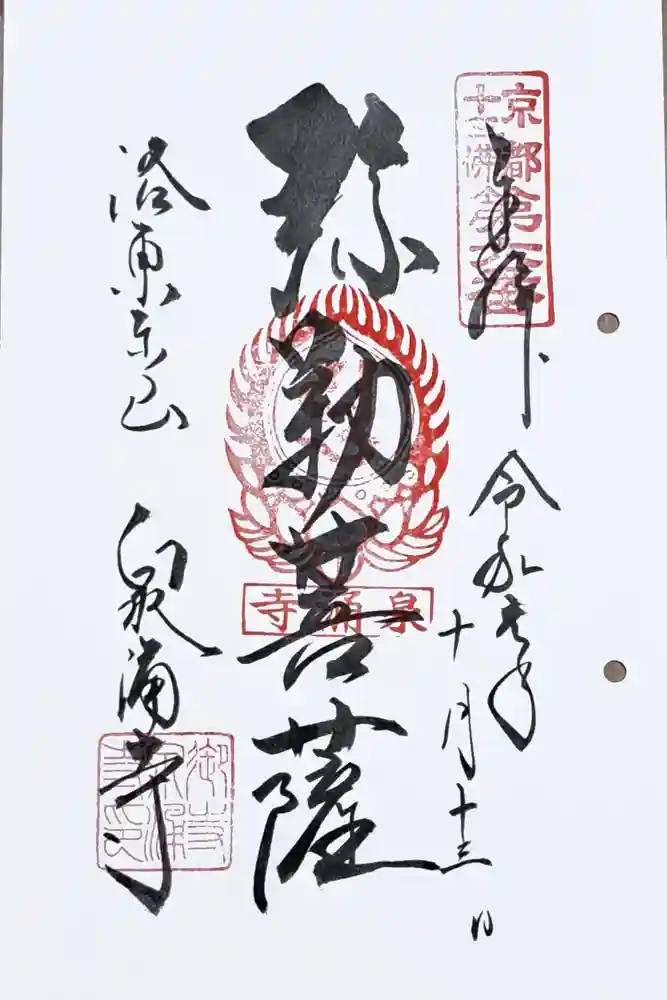 奉拝
京都
十三佛
令和元年
十月十三日
弥勒菩薩
泉涌寺
洛東東山
泉涌寺
御寺
泉涌
寺印